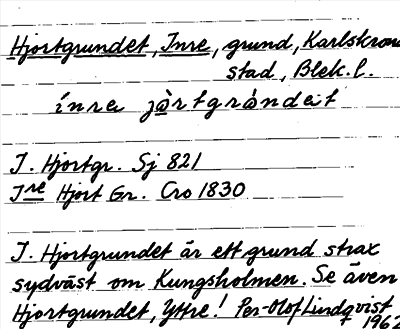 Hjortgrundet, Inre, grund, Karlskrona
stad, Blek. l.
inre jòrtgrándet
I. Hjortgr. Sj 821
Ire Hjort Gr. Cro 1830
I. Hjortgrundet är ett grund strax
sydväst om Kungsholmen. Se även
Hjortgrundet, Yttre! Per-Olof Lindqvist
1962